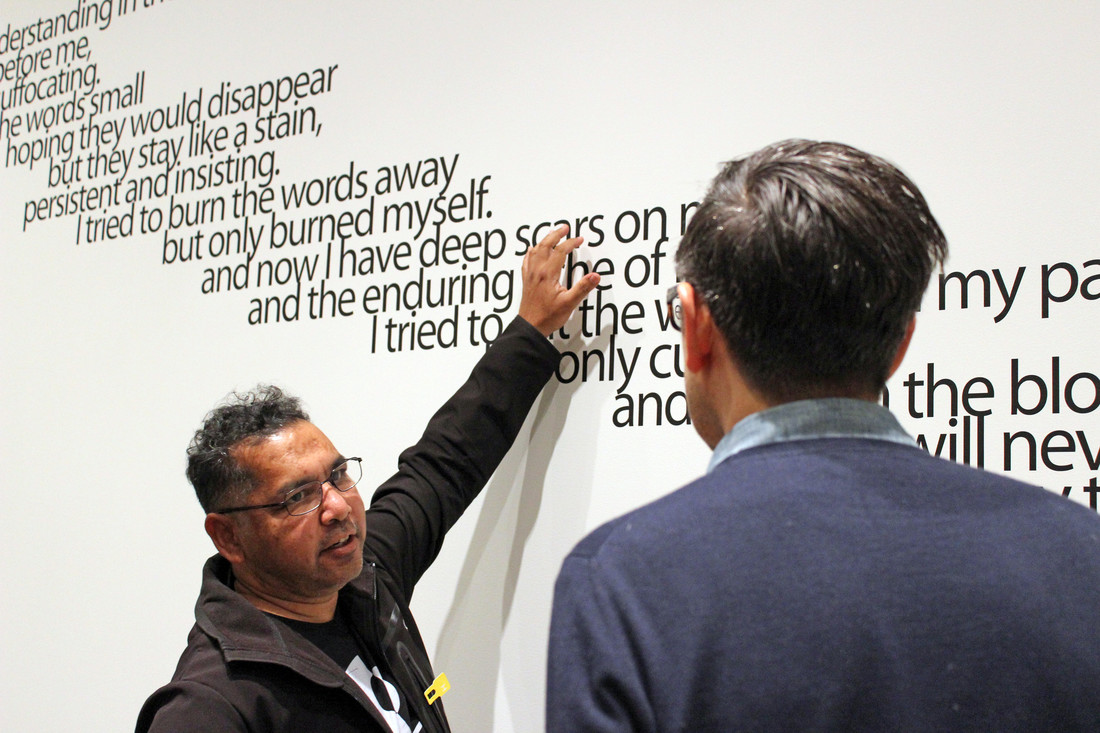 derstanding in th
before me,
uffocating.
he words small
hoping they would disappear
but they stay like a stain,
persistent and insisting.
I tried to burn the words away
but only burned myself.
and now I have deep scars on
and the enduring of
I tried to the my pa
only cu
and the blo
will nev